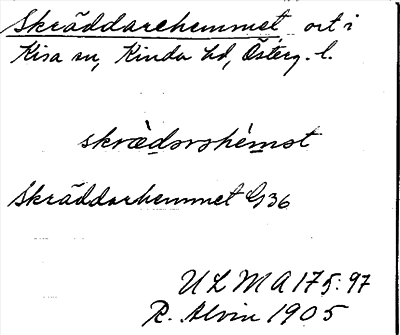 Skräddarehemmet ort i
Kisa sn, Kinda hd, Österg. l.
skræ̀dərshémət
Skräddarhemmet G36
ULMA 175:97
R. Alvin 1905